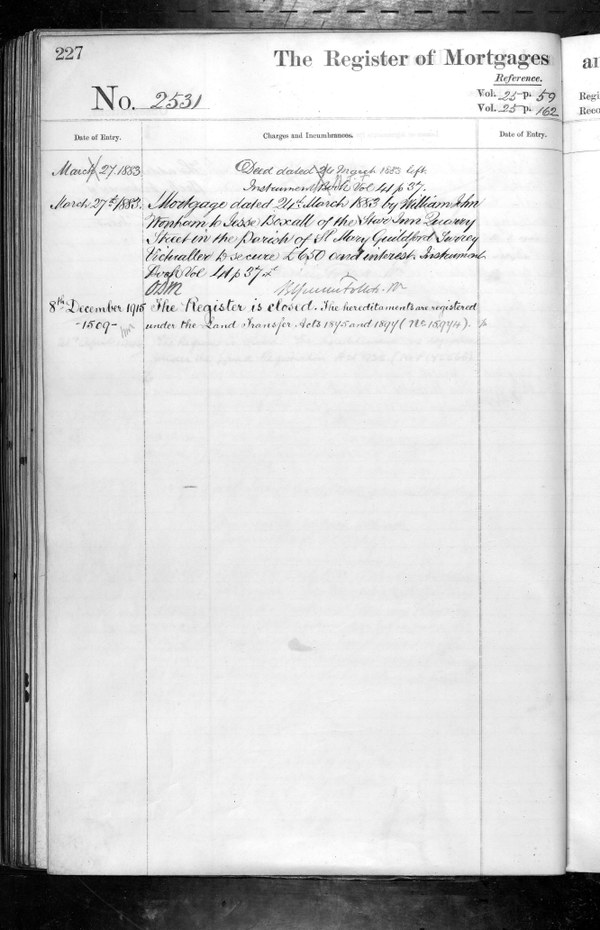 227
The Register of Mortgages
Reference.
No. 2531
Vol. 25 p. 59
Vol. 25 p. 162
an
Regi
Reco
Date of Entry.
Charges and Incumbrances.
Date of Entry.
March 27. 1883
Deed dated 24 March 1883 left
Instrument Book Vol 41 p 37.
March 27th 1883.
Mortgage dated 24th March 1883 by William John
Wonham to Jesse Boxall of the Star Inn Quarry
Street in the Parish of St Mary Guildford Surrey
Victualler to secure £650 and interest. Instrument
Book Vol 41 p 37
8th December 1915
-1509-
The Register is closed. The hereditaments are registered
under the Land Transfer Acts 1875 and 1897 (No 18974).